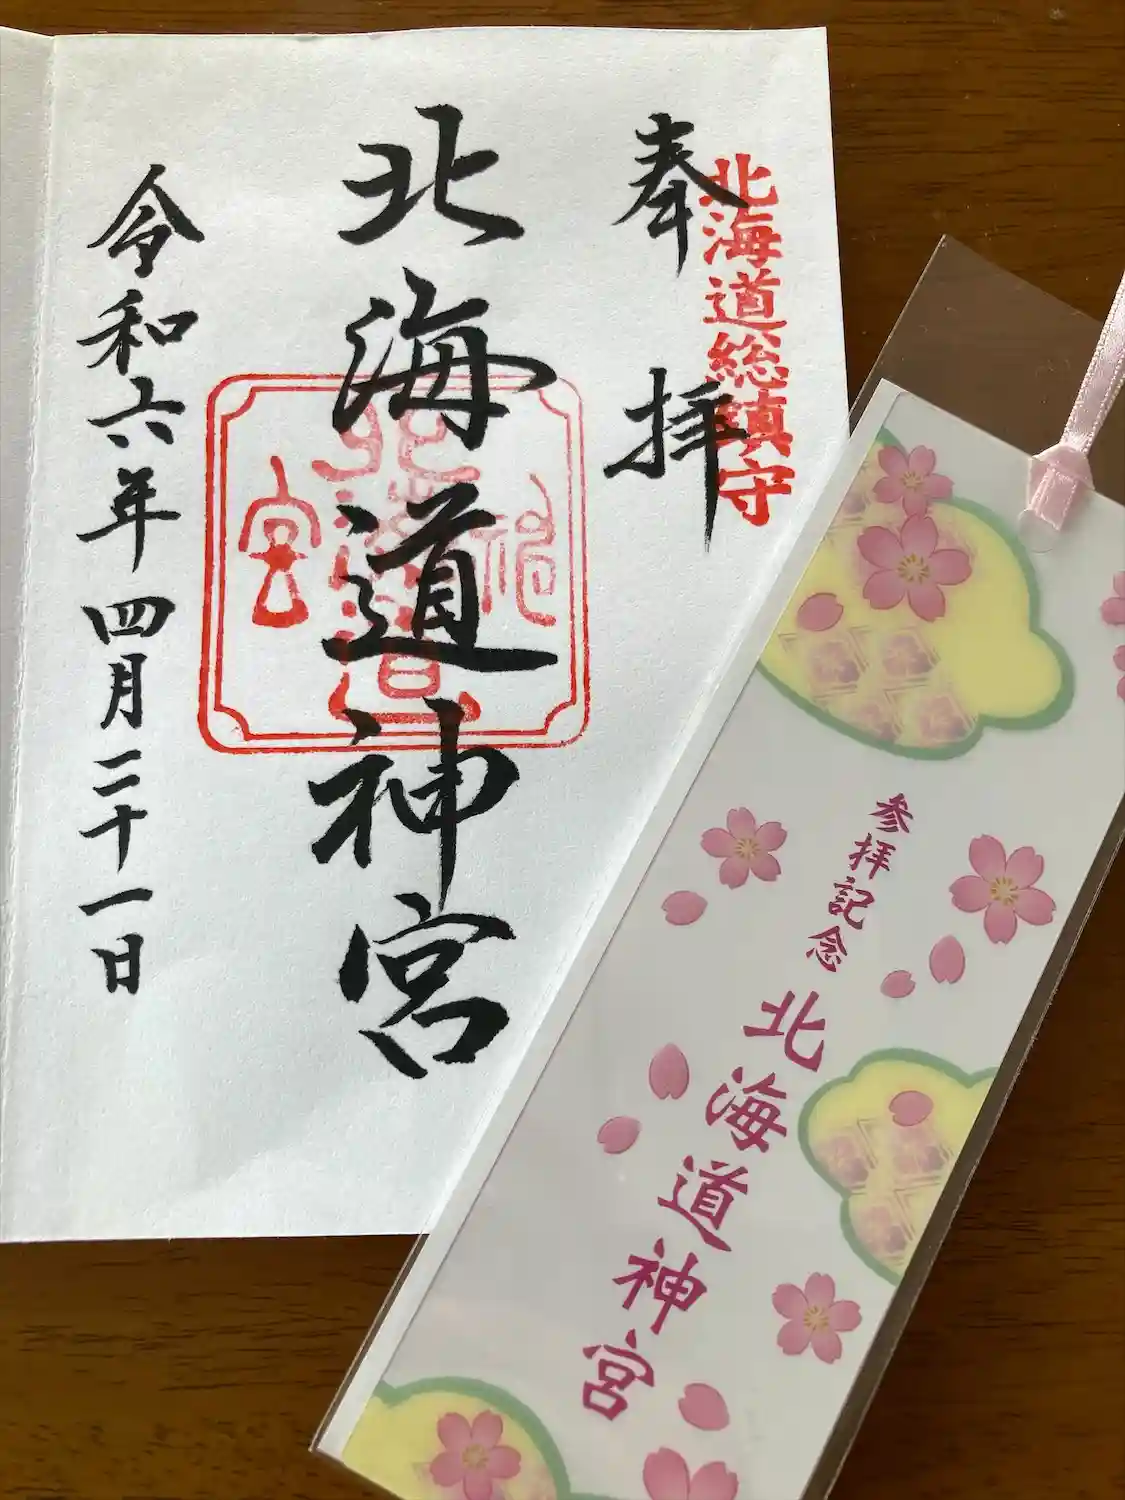 北海道総鎮守
奉拝
北海道神宮
北海道神宮
令和六年四月二十一日
参拝記念
北海道神宮